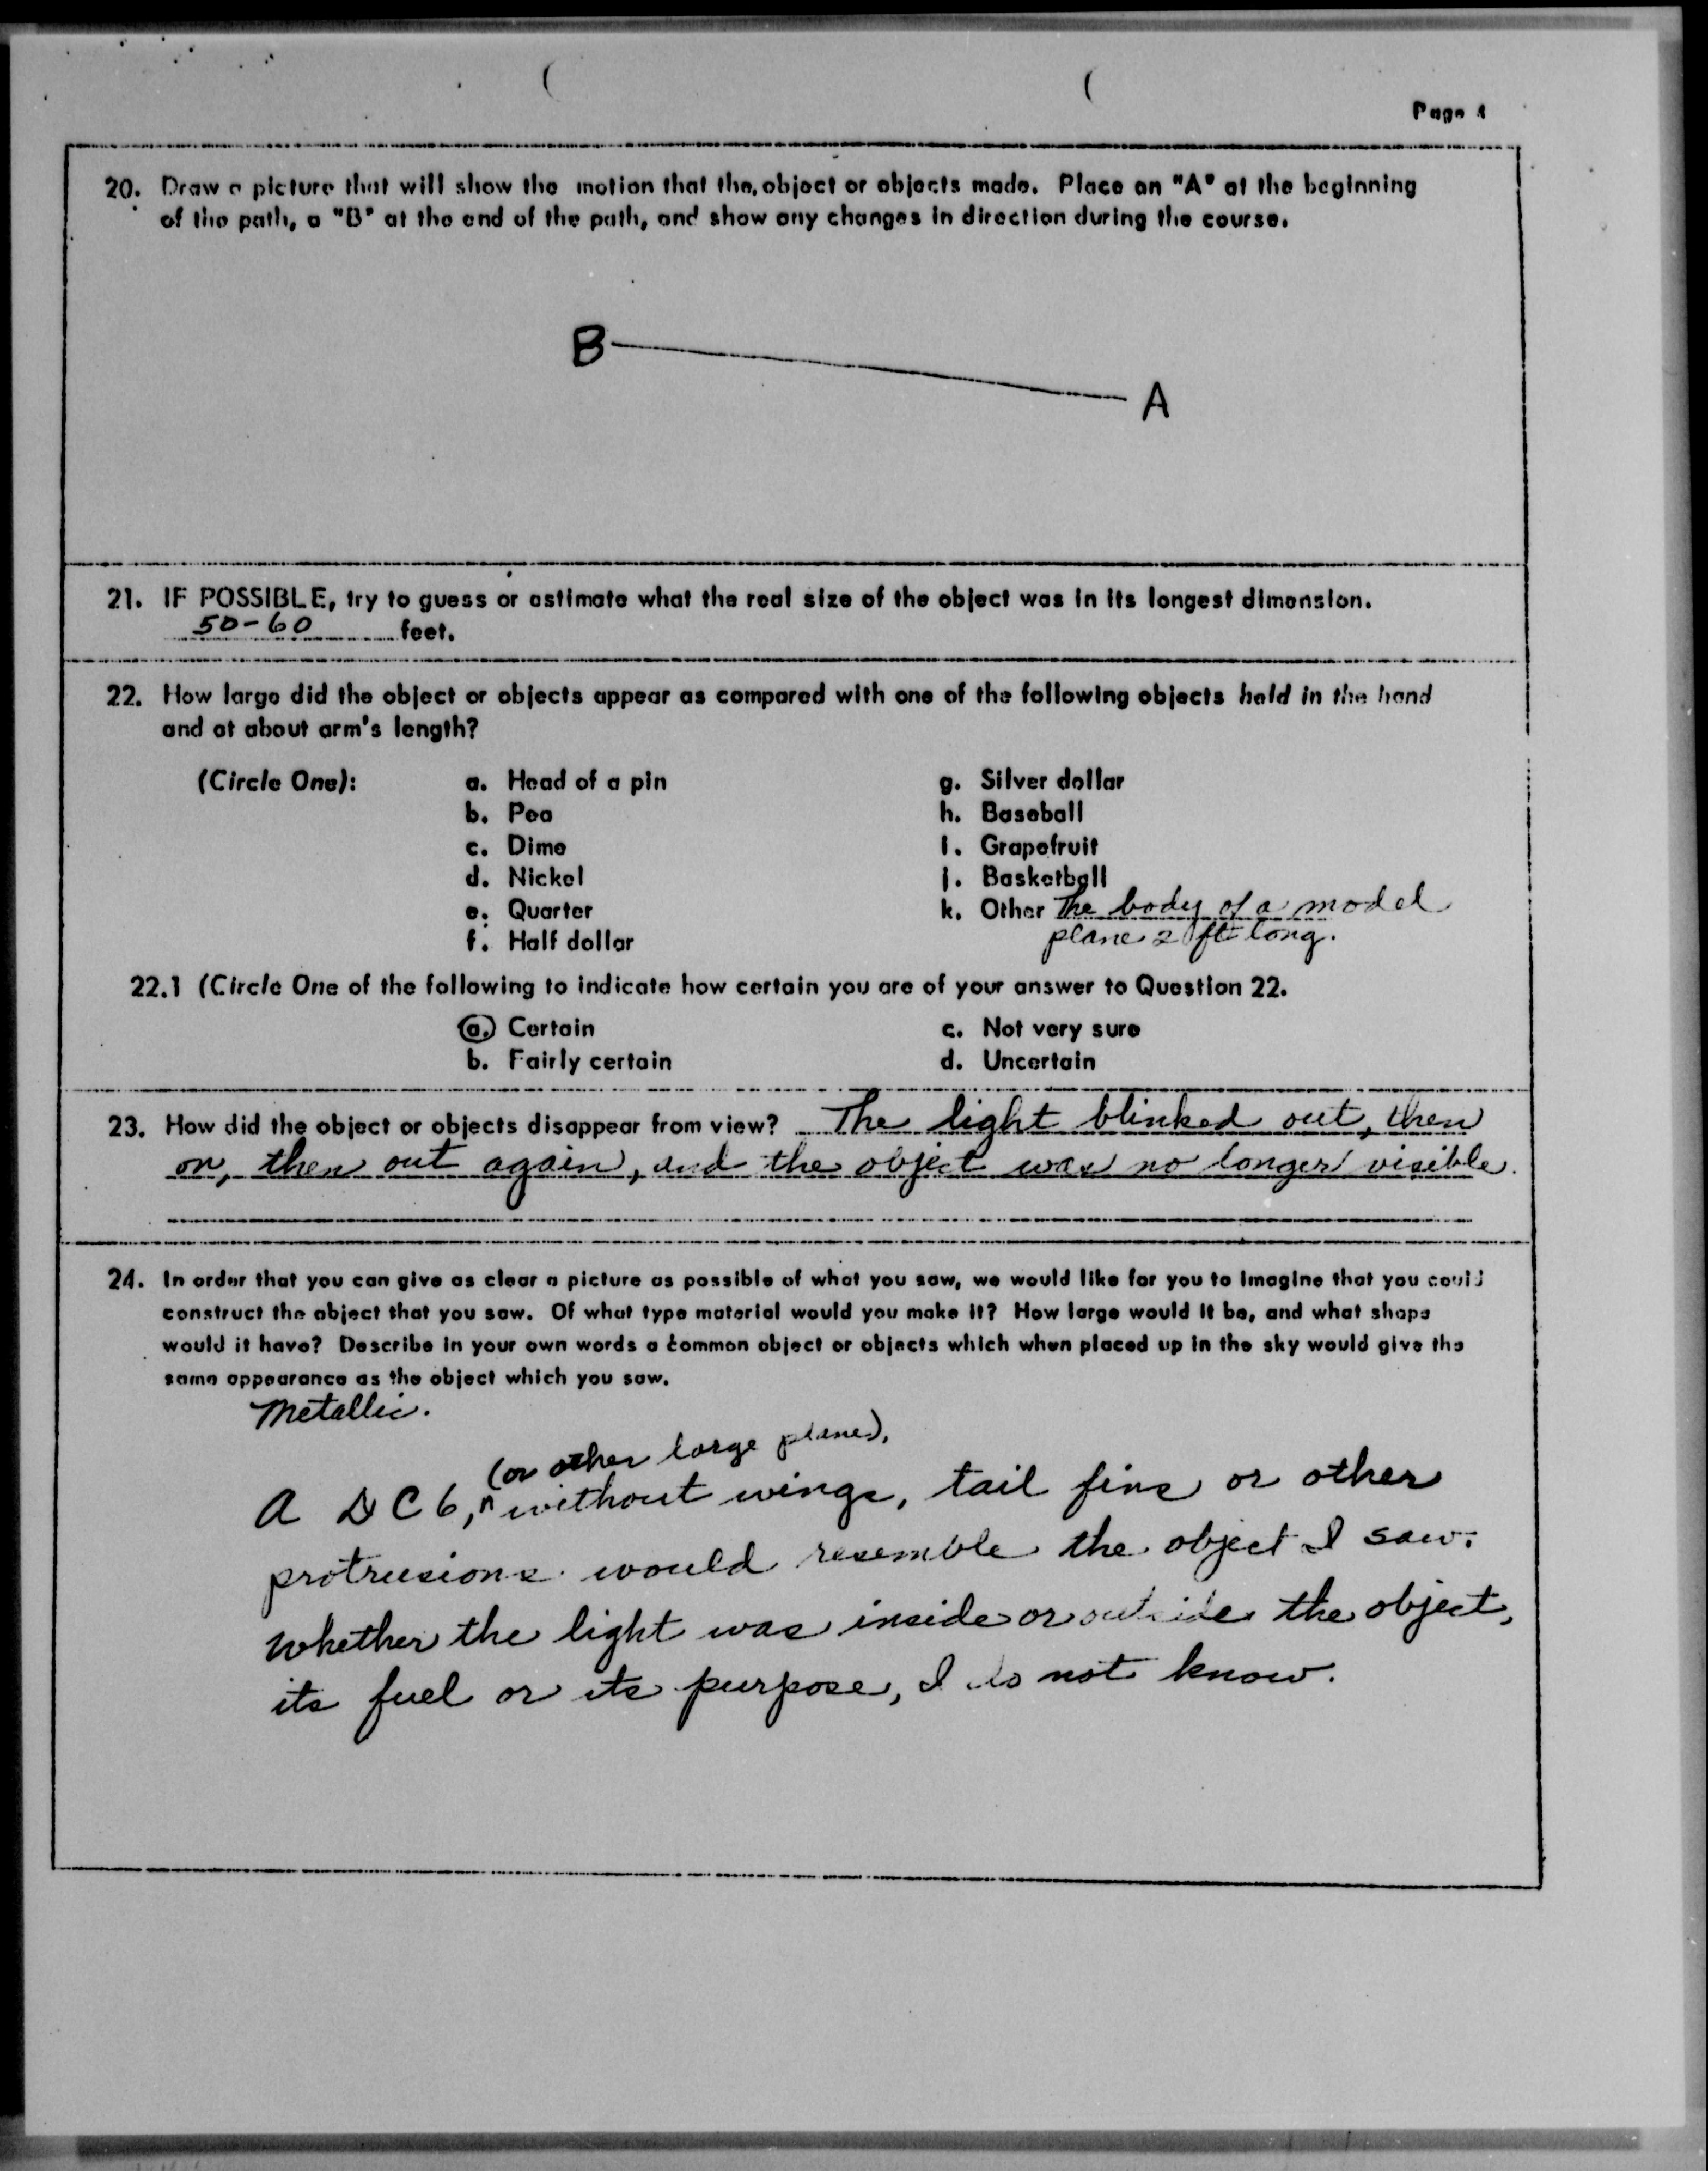 Page 4
20. Draw a picture that will show the motion that the object or objects made. Place an "A" at the beginning
of the path, a "B" at the end of the path, and show any changes in direction during the course.
B
A
21. IF POSSIBLE, try to guess or estimate what the real size of the object was in its longest dimension.
50-60 feet.
22. How large did the object or objects appear as compared with one of the following objects held in the hand
and at about arm's length?
(Circle One): a. Head of a pin g. Silver dollar
b. Pea h. Baseball
c. Dime i. Grapefruit
d. Nickel j. Basketball
e. Quarter k. Other The body of a model
f. Half dollar plane 2 ft long.
22.1 (Circle One of the following to indicate how certain you are of your answer to Question 22.
a. Certain c. Not very sure
b. Fairly certain d. Uncertain
23. How did the object or objects disappear from view? The light blinked out, then
on, then out again, and the object was no longer visible.
24. In order that you can give as clear a picture as possible of what you saw, we would like for you to imagine that you could
construct the object that you saw. Of what type material would you make it? How large would it be, and what shape
would it have? Describe in your own words a common object or objects which when placed up in the sky would give the
same appearance as the object which you saw.
Metallic.
(or other large plane),
A DC6, without wings, tail fins or other
protrusions would resemble the object I saw.
Whether the light was inside or outside the object,
its fuel or its purpose, I do not know.